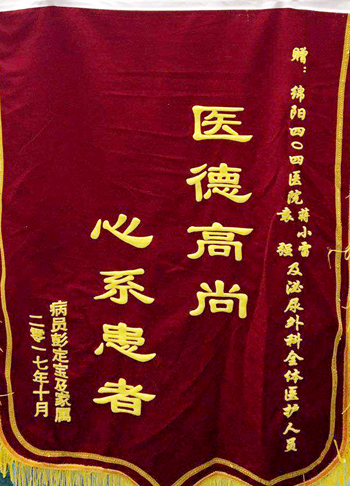 赠：绵阳四〇四医院蒋小雷
袁强及泌尿外科全体医护人员
医德高尚
心系患者
病员彭定宝及家属
二零一七年十月